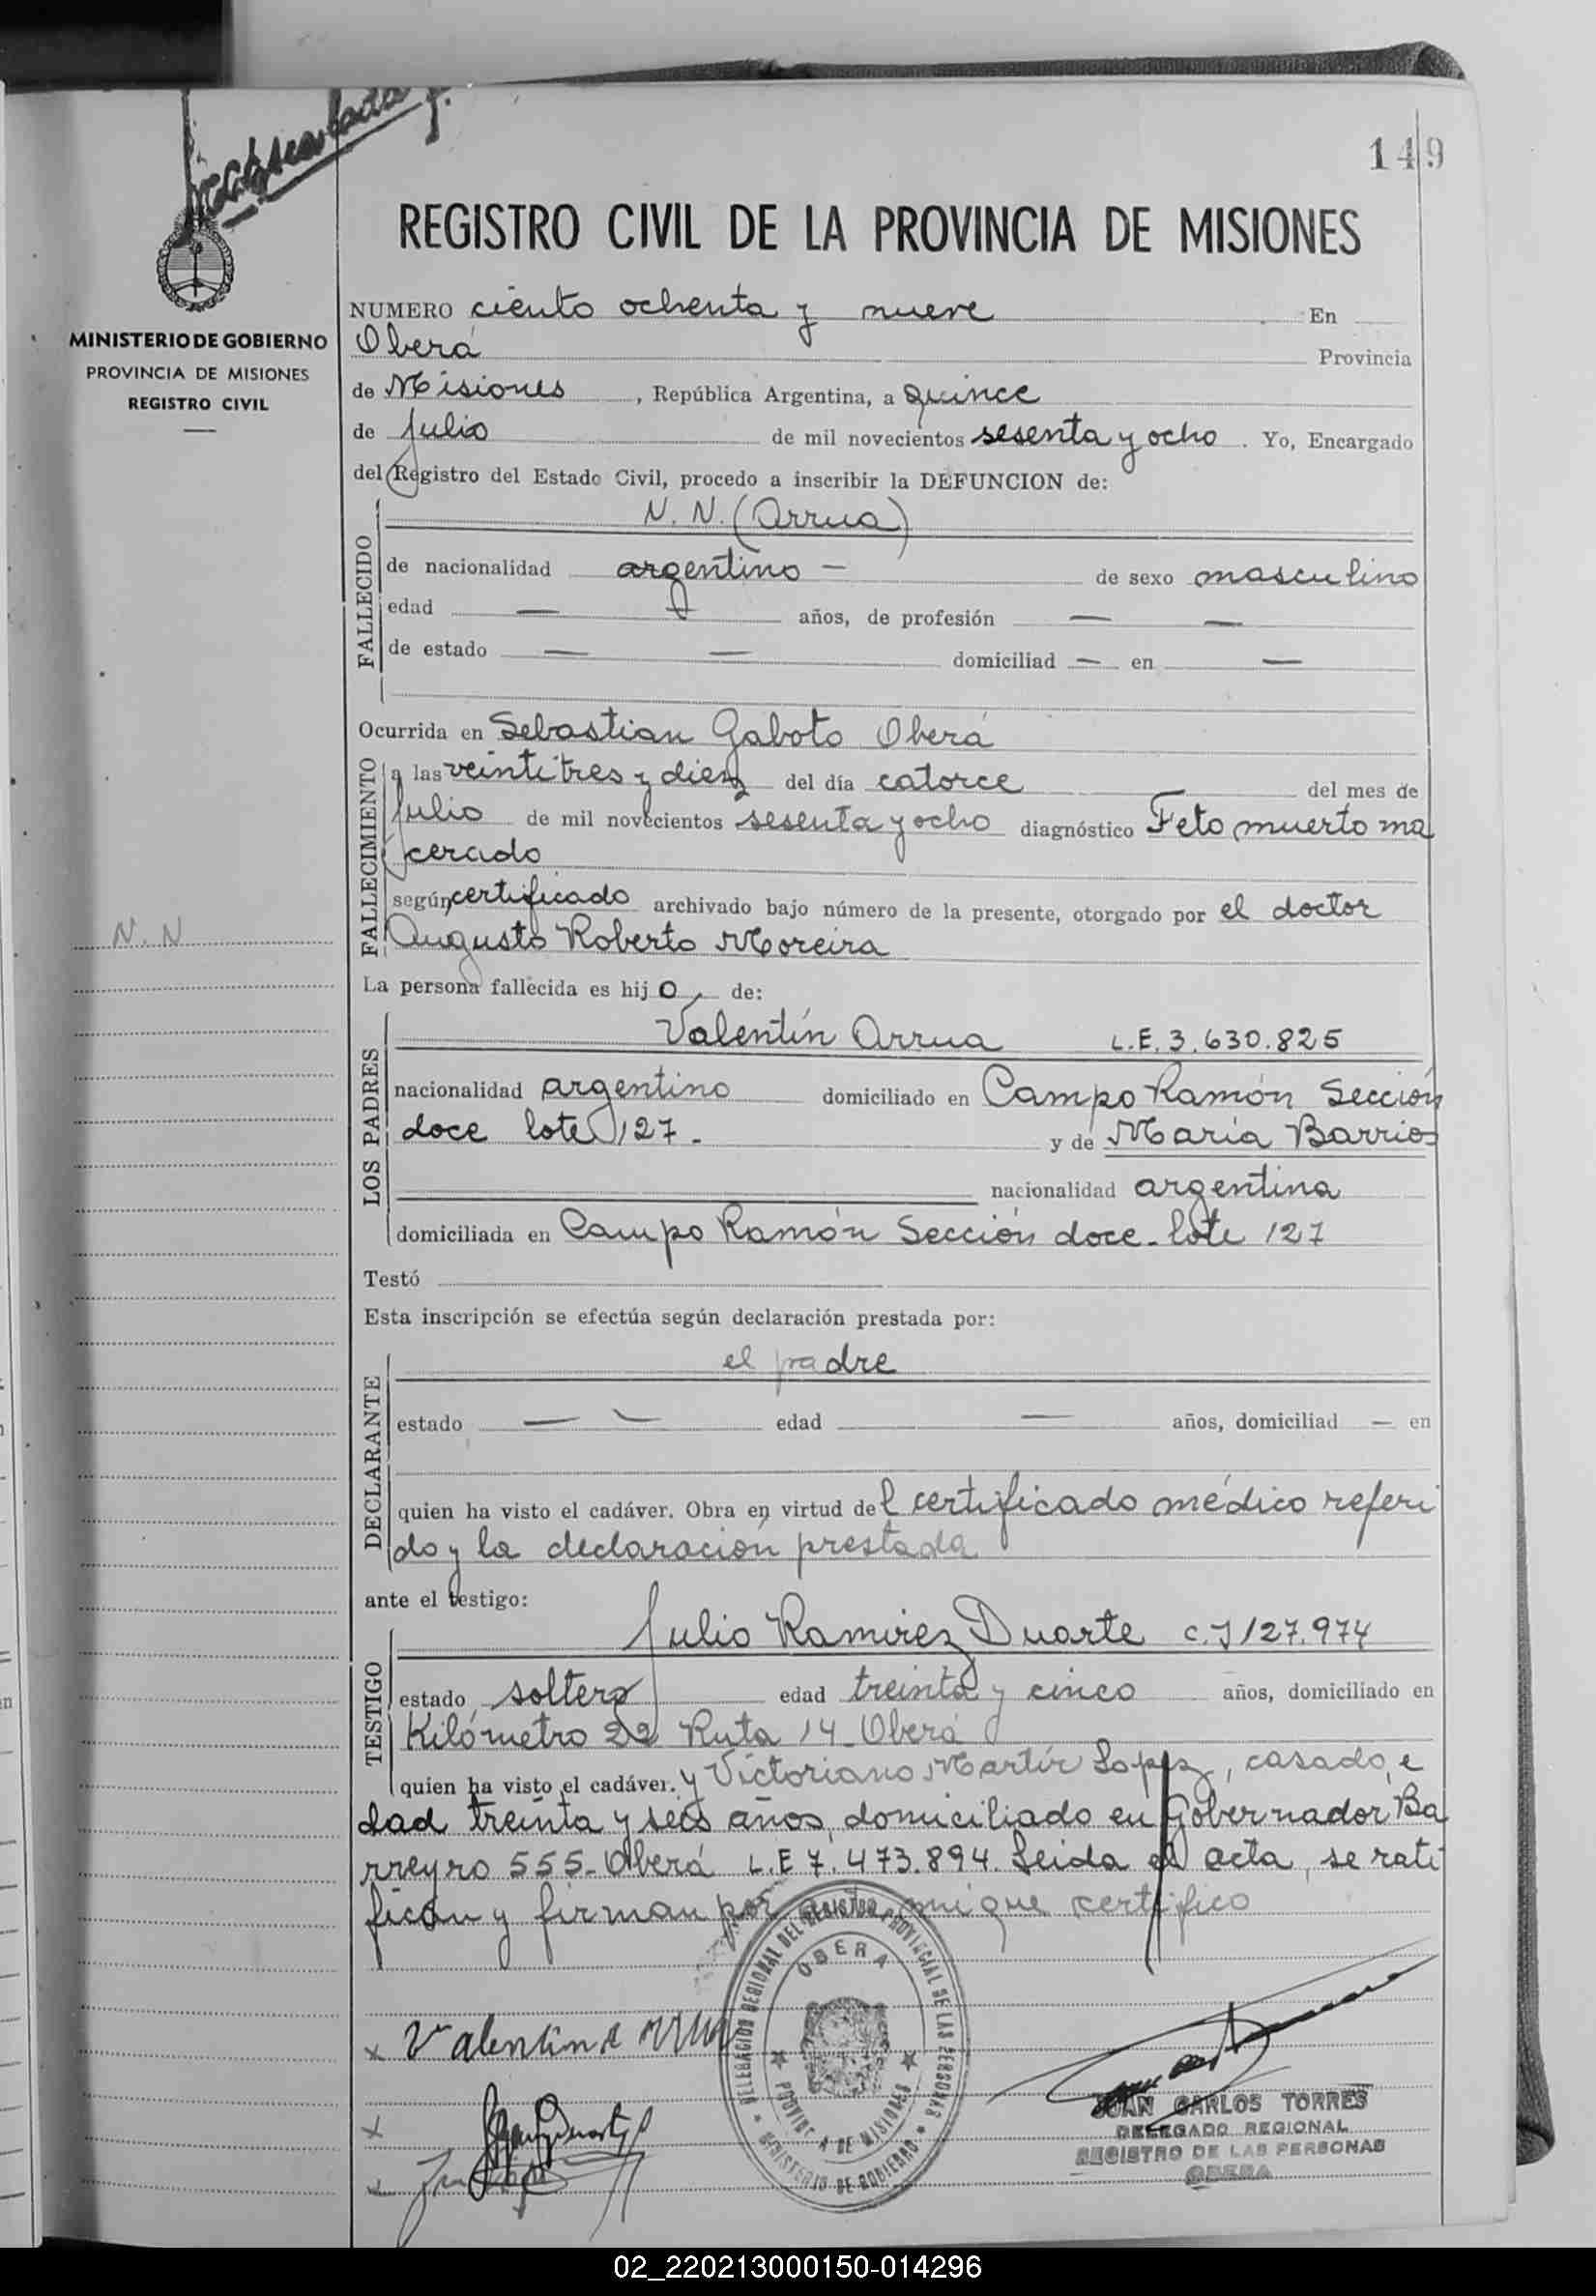 149
REGISTRO CIVIL DE LA PROVINCIA DE MISIONES
MINISTERIO DE GOBIERNO
PROVINCIA DE MISIONES
REGISTRO CIVIL
NUMERO ciento ochenta y nueve En
Oberá Provincia
de Misiones, República Argentina, a quince
de julio de mil novecientos sesenta y ocho. Yo, Encargado
del Registro del Estado Civil, procedo a inscribir la DEFUNCION de:
FALLECIDO
N. N. (Arrua)
de nacionalidad argentino - de sexo masculino
edad — años, de profesión — —
de estado — — domiciliad — en —
FALLECIMIENTO
Ocurrida en Sebastian Gaboto Oberá
a las veintitres y diez del día catorce del mes de
julio de mil novecientos sesenta y ocho diagnóstico Feto muerto ma
cerado
según certificado archivado bajo número de la presente, otorgado por el doctor
N. N
Augusto Roberto Moreira
La persona fallecida es hijo de:
LOS PADRES
Valentín Arrua L.E. 3.630.825
nacionalidad argentino domiciliado en Campo Ramón Sección
doce lote 127. y de María Barrios
nacionalidad argentina
domiciliada en Campo Ramón Sección doce - lote 127
Testó
Esta inscripción se efectúa según declaración prestada por:
DECLARANTE
el padre
estado — — edad — años, domiciliad — en
quien ha visto el cadáver. Obra en virtud del certificado médico referi
do y la declaración prestada
ante el testigo:
TESTIGO
Julio Ramirez Duarte C.I 127.974
estado soltero edad treinta y cinco años, domiciliado en
Kilómetro 22 Ruta 14 - Oberá
quien ha visto el cadáver. y Victoriano Martír Lopez, casado, e
dad treinta y seis años, domiciliado en Gobernador Ba
rreyro 555 - Oberá L.E 7.473.894. Leida el acta, se rati
fican y firman por ante mi que certifico
x Valentin Arrua
x
x
DELEGACION REGIONAL DEL REGISTRO PROVINCIAL DE LAS PERSONAS
OBERA
PROVINCIA DE MISIONES
MINISTERIO DE GOBIERNO
JUAN CARLOS TORRES
DELEGADO REGIONAL
REGISTRO DE LAS PERSONAS
OBERA
02_220213000150-014296